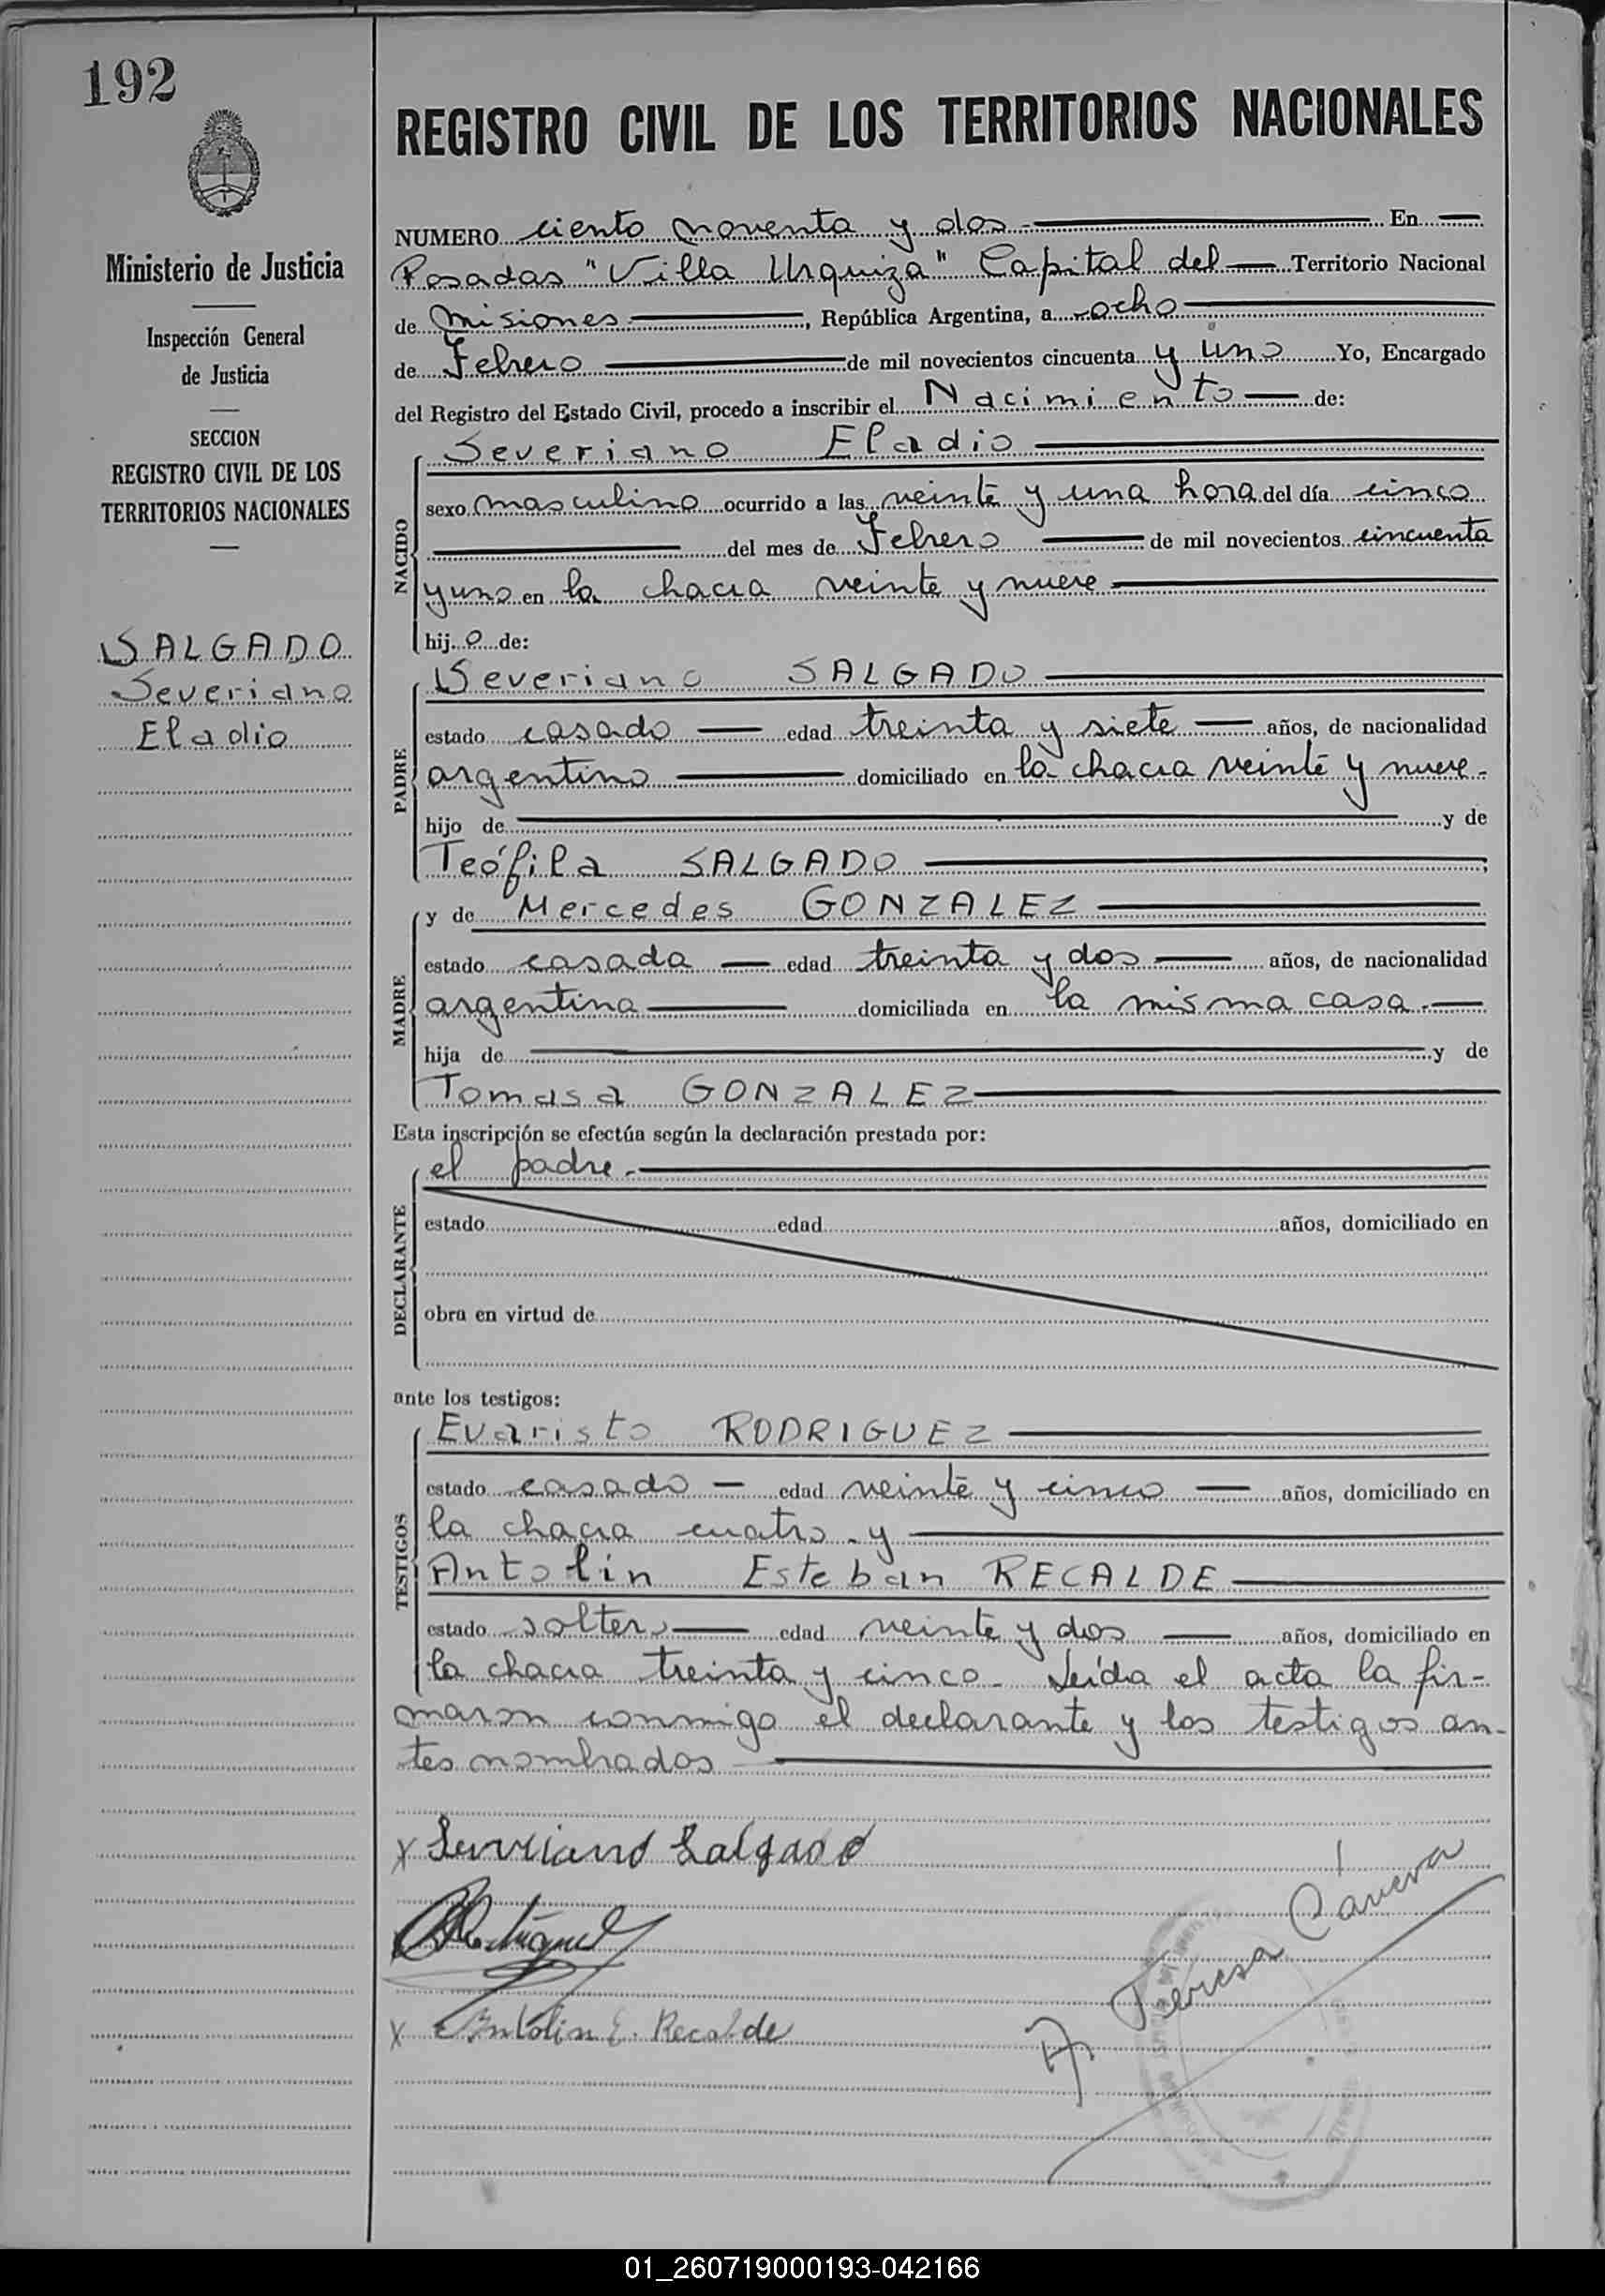 192
REGISTRO CIVIL DE LOS TERRITORIOS NACIONALES
Ministerio de Justicia
Inspección General
de Justicia
SECCION
REGISTRO CIVIL DE LOS
TERRITORIOS NACIONALES
SALGADO
Severiano
Eladio
NUMERO ciento noventa y dos En
Posadas "Villa Urquiza" Capital del Territorio Nacional
de Misiones, República Argentina, a ocho
de Febrero de mil novecientos cincuenta y uno Yo, Encargado
del Registro del Estado Civil, procedo a inscribir el Nacimiento de:
NACIDO
Severiano Eladio
sexo masculino ocurrido a las veinte y una hora del día cinco
del mes de Febrero de mil novecientos cincuenta
y uno en la chacra veinte y nueve
hijo de:
PADRE
Severiano SALGADO
estado casado edad treinta y siete años, de nacionalidad
argentino domiciliado en la chacra veinte y nueve.
hijo de y de
Teófila SALGADO ;
MADRE
y de Mercedes GONZALEZ
estado casada edad treinta y dos años, de nacionalidad
argentina domiciliada en la misma casa.
hija de y de
Tomasa GONZALEZ
Esta inscripción se efectúa según la declaración prestada por:
DECLARANTE
el padre.
estado edad años, domiciliado en
obra en virtud de
ante los testigos:
TESTIGOS
Evaristo RODRIGUEZ
estado casado edad veinte y cinco años, domiciliado en
la chacra cuatro y
Antolin Esteban RECALDE
estado soltero edad veinte y dos años, domiciliado en
la chacra treinta y cinco. Leída el acta la fir-
maron conmigo el declarante y los testigos an-
tes nombrados
x Severiano Salgado
Rodriguez
x Antolin E. Recalde
Teresa Cánova
01_260719000193-042166